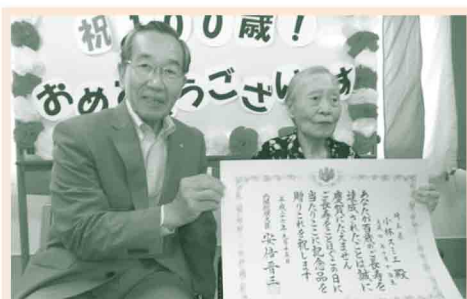 祝100歳!
おめでとうございます
埼玉県
小林スエ殿
あなたが百歳のご長寿を
達成されたことは誠に
慶賀にたえません
ご長寿をことほぐこの日に
当たりここに記念品を
贈りこれを祝します
内閣総理大臣 安倍晋三